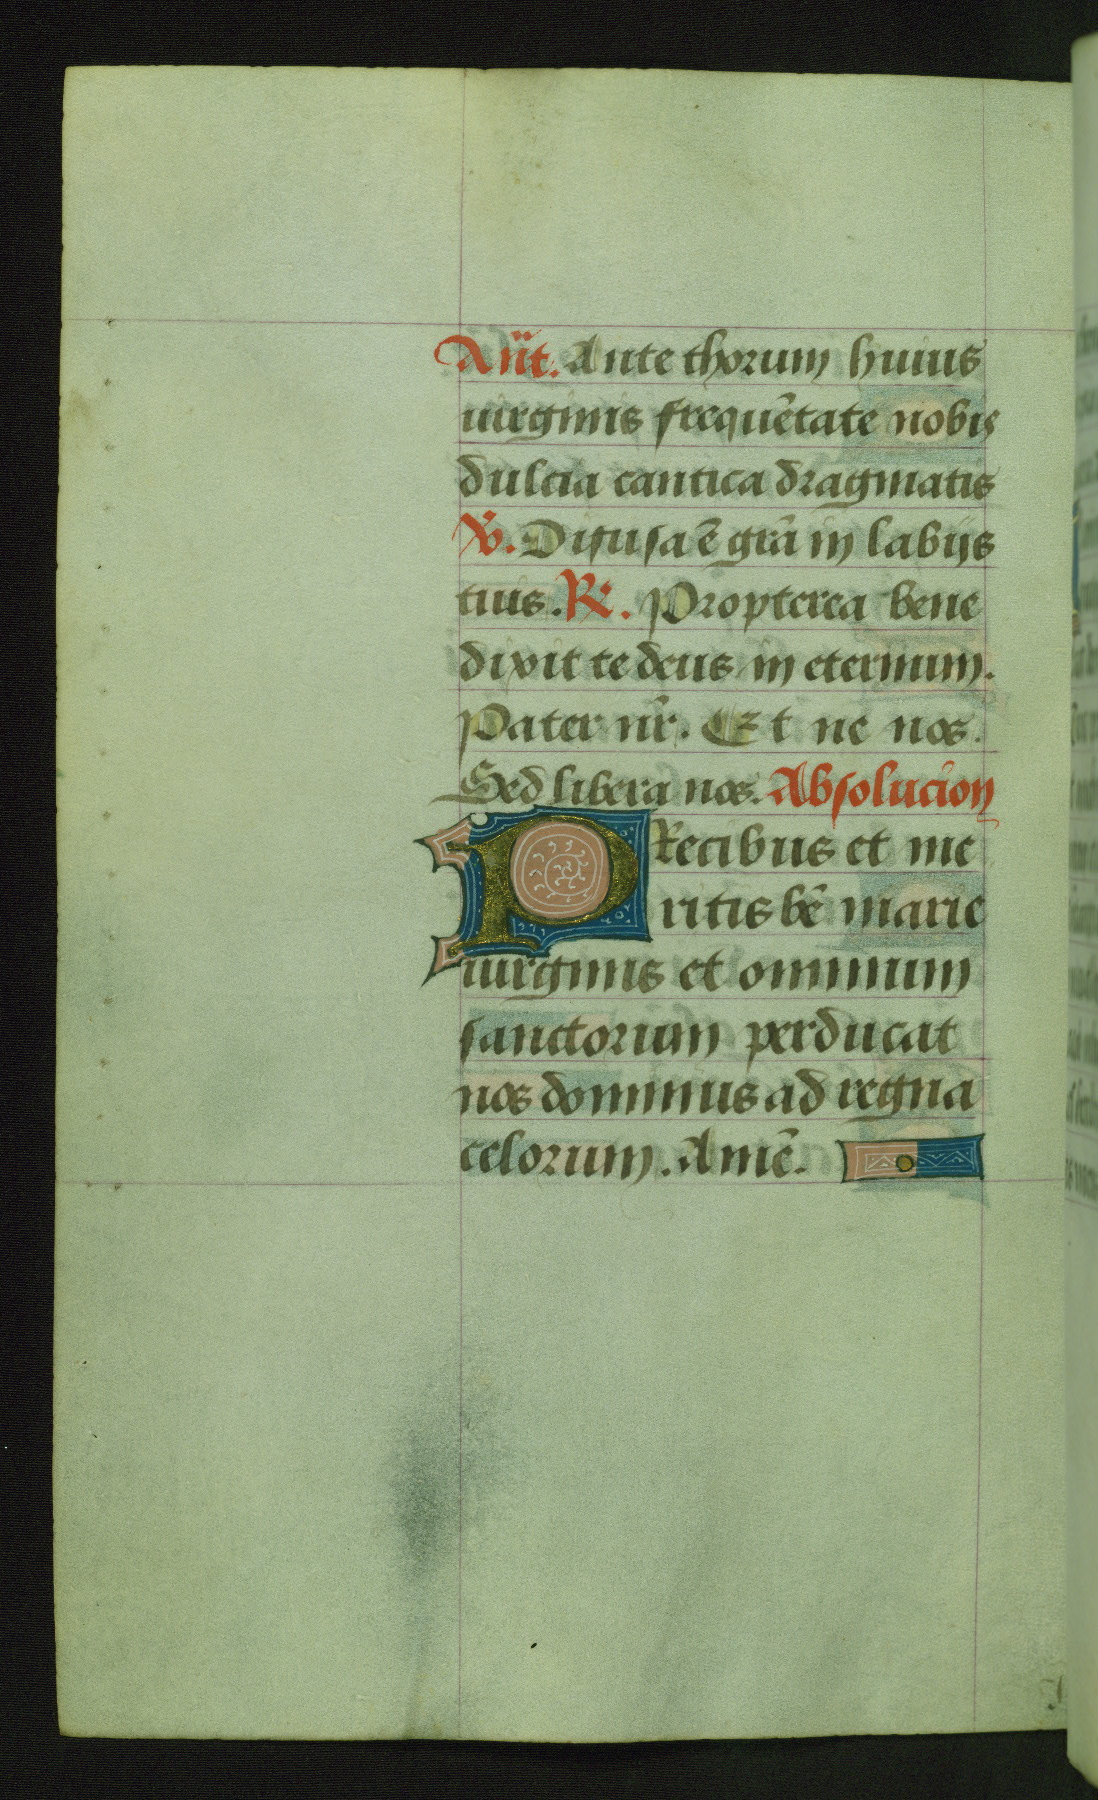 Añt. Ante thorum huius
uirginis frequētate nobis
dulcia cantica dragmatis
V. Difusa ē grā in labijs
tuis. R. Propterea bene
dixit te deus in eternum.
Pater nr̄. Et ne nos.
Sed libera nos. Absolucion
PRecibus et me
ritis bē marie
uirginis et omnium
sanctorum perducat
nos dominus ad regna
celorum. Amē.